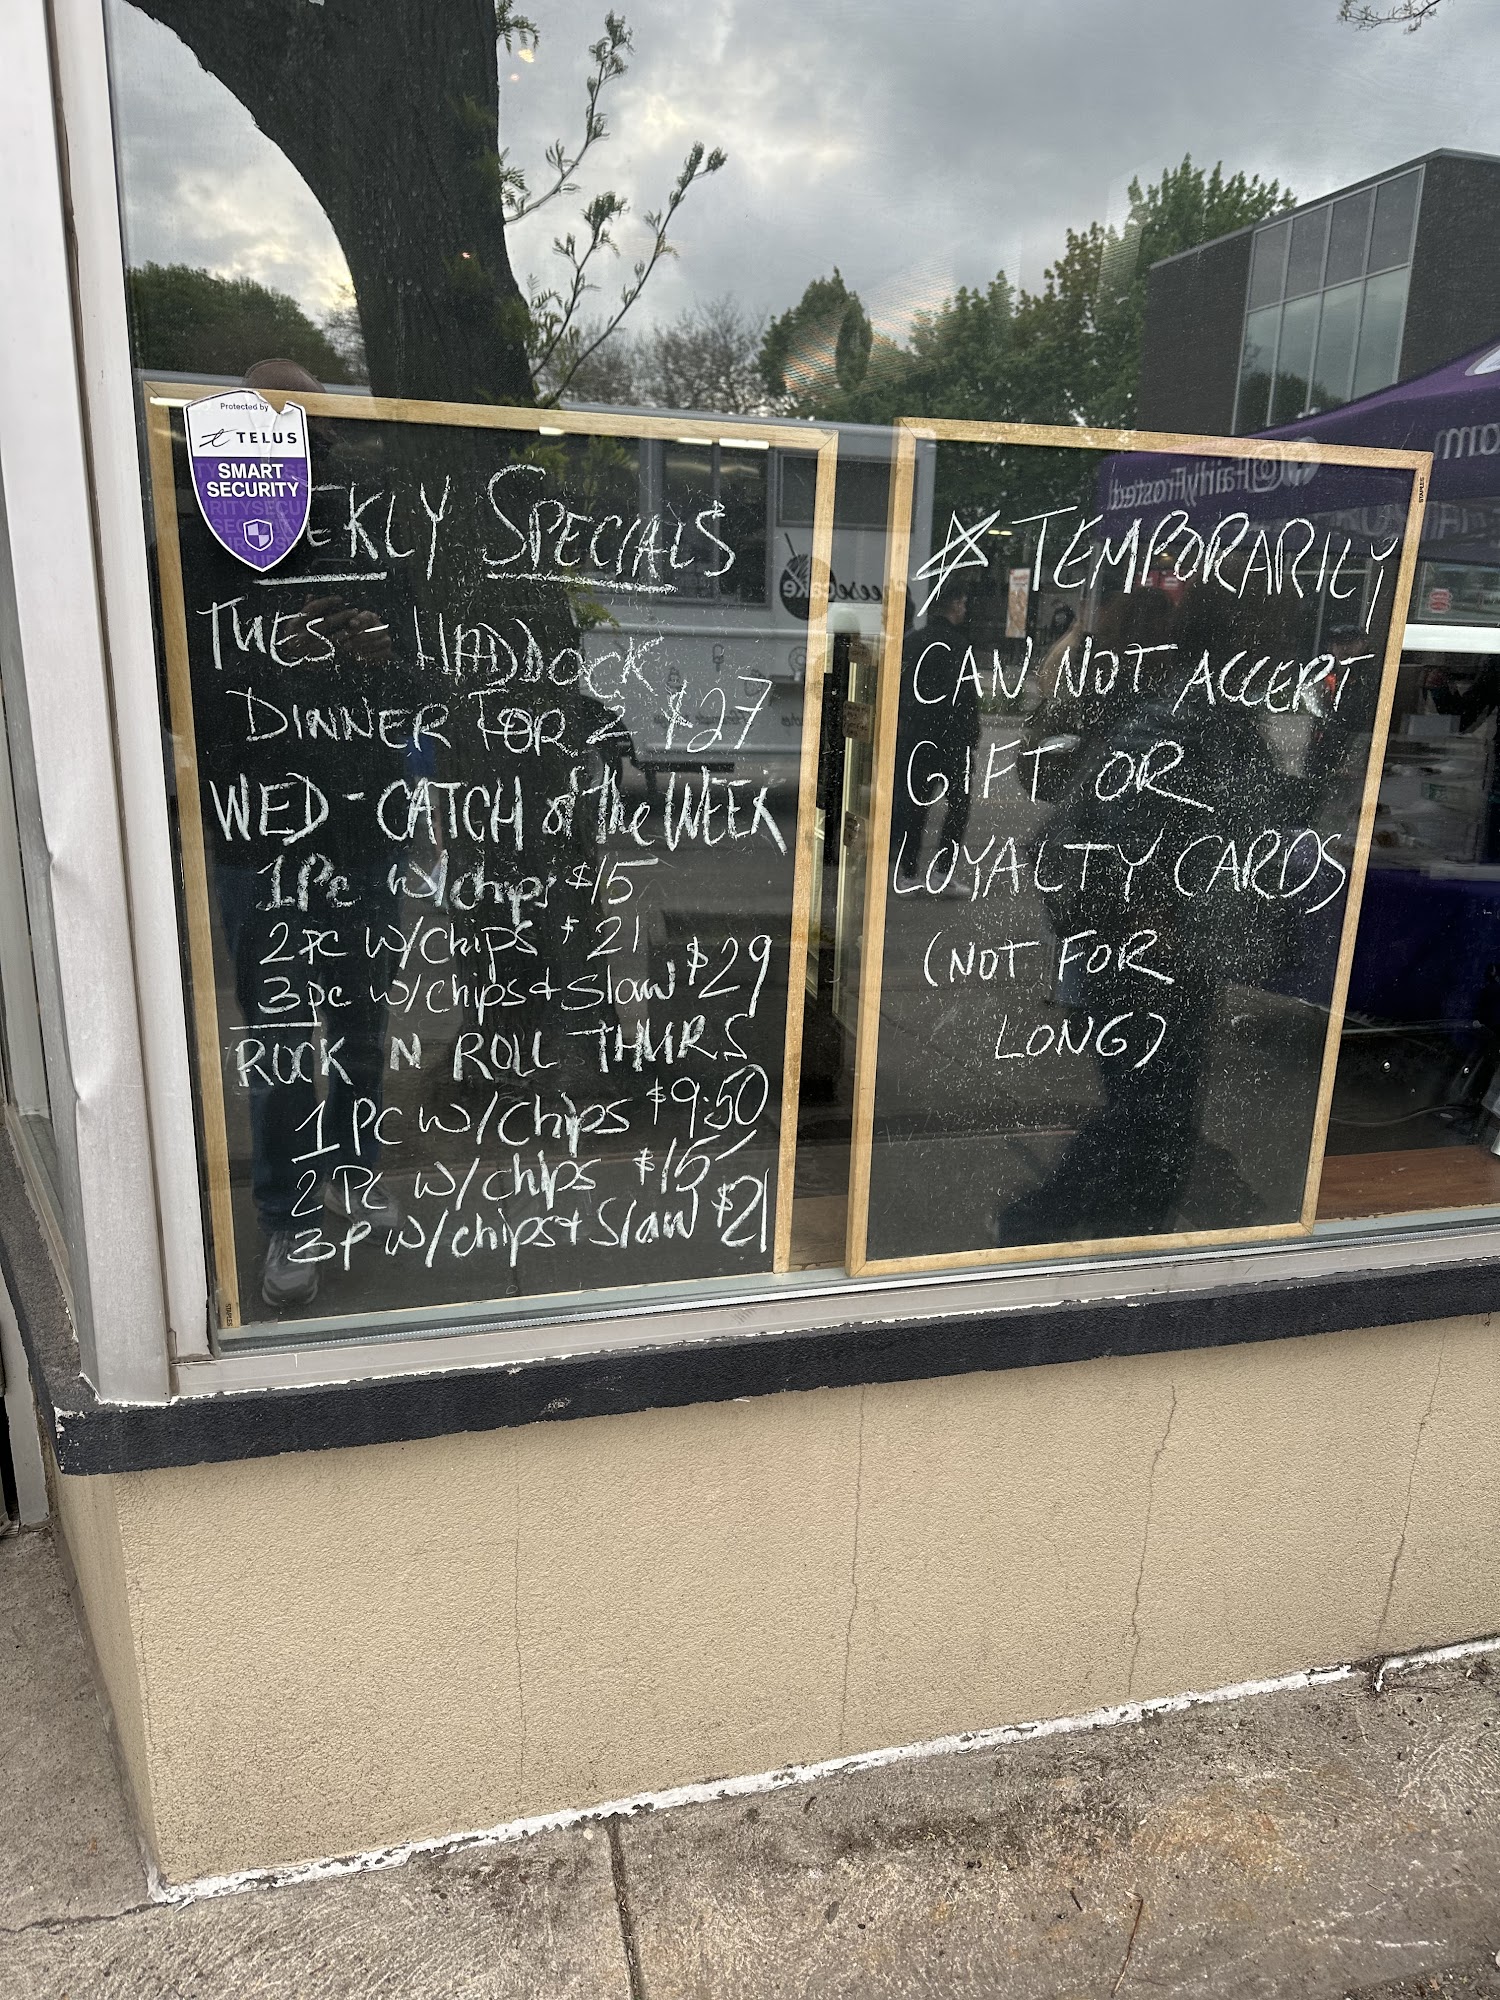 Protected by
TELUS
SMART
SECURITY
EKLY SPECIALS
TUES - HADDOCK
DINNER FOR 2 $27
WED - CATCH of the WEEK
1Pc w/chips $15
2pc w/chips $21
3pc w/chips + Slaw $29
ROCK N ROLL THURS
1PC w/Chips $9.50
2PC w/chips $15
3P w/chips + Slaw $21
STAPLES
* TEMPORARILY
CAN NOT ACCEPT
GIFT OR
LOYALTY CARDS
(NOT FOR
LONG)
STAPLES
FairlyFrosted